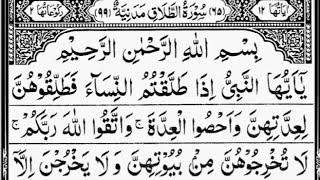 اٰیَاتُهَا ١٢ (٦٥) سُوْرَةُ الطَّلَاقِ مَدَنِیَّةٌ (٩٩) رُكُوْعَاتُهَا ٢
بِسْمِ اللهِ الرَّحْمٰنِ الرَّحِيْمِ
يٰۤاَيُّهَا النَّبِيُّ اِذَا طَلَّقْتُمُ النِّسَآءَ فَطَلِّقُوْهُنَّ
لِعِدَّتِهِنَّ وَاَحْصُوا الْعِدَّةَ ۚ وَاتَّقُوا اللهَ رَبَّكُمْ ۚ
لَا تُخْرِجُوْهُنَّ مِنْۢ بُيُوْتِهِنَّ وَلَا يَخْرُجْنَ اِلَّاۤ